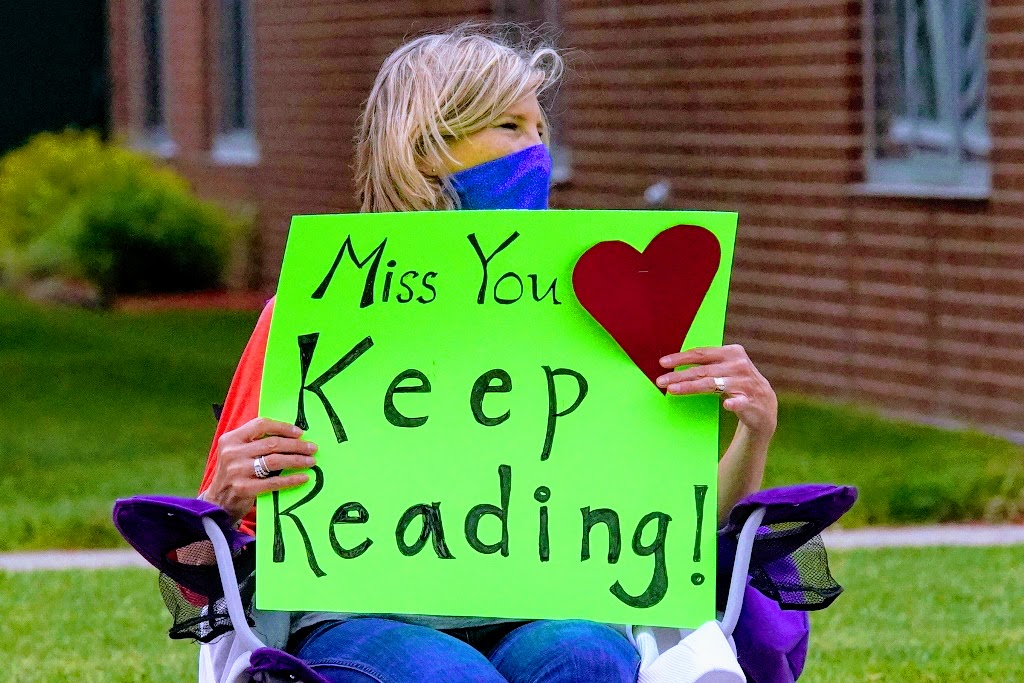 Miss You
Keep
Reading!